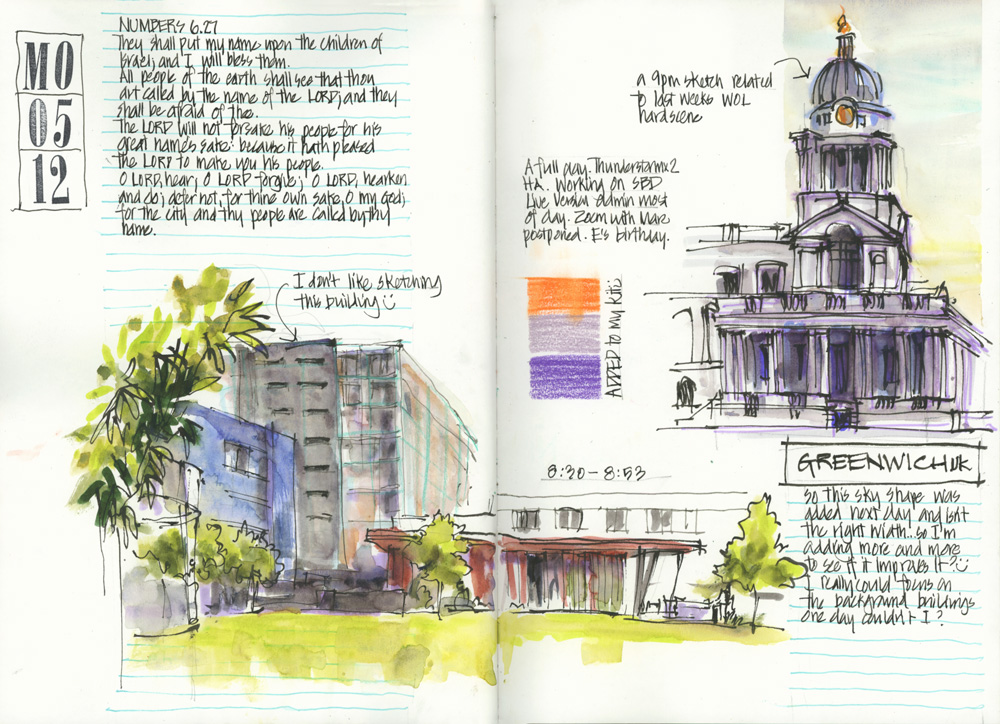 MO
05
12
NUMBERS 6.27
They shall put my name upon the children of
Israel; and I will bless them.
All people of the earth shall see that thou
art called by the name of the LORD; and they
shall be afraid of thee.
The LORD will not forsake his people for his
great names sake: because it hath pleased
the LORD to make you his people.
O LORD, hear; O LORD forgive; O LORD, hearken
and do; defer not, for thine own sake, O my God;
for the city and thy people are called by thy
name.
I don't like sketching
this building
a 9pm sketch related
to last weeks WOL
hardscene
A full day. Thunderstorm x2
HA. Working on SBD
Live Version admin most
of day. Zoom with Marc
postponed. E's birthday.
ADDED to my kit
8:30-8:53
GREENWICH UK
so this sky shape was
added next day and isnt
the right width.. so I'm
adding more and more
to see if it improves it?
I really could focus on
the background buildings
one day couldn't I?